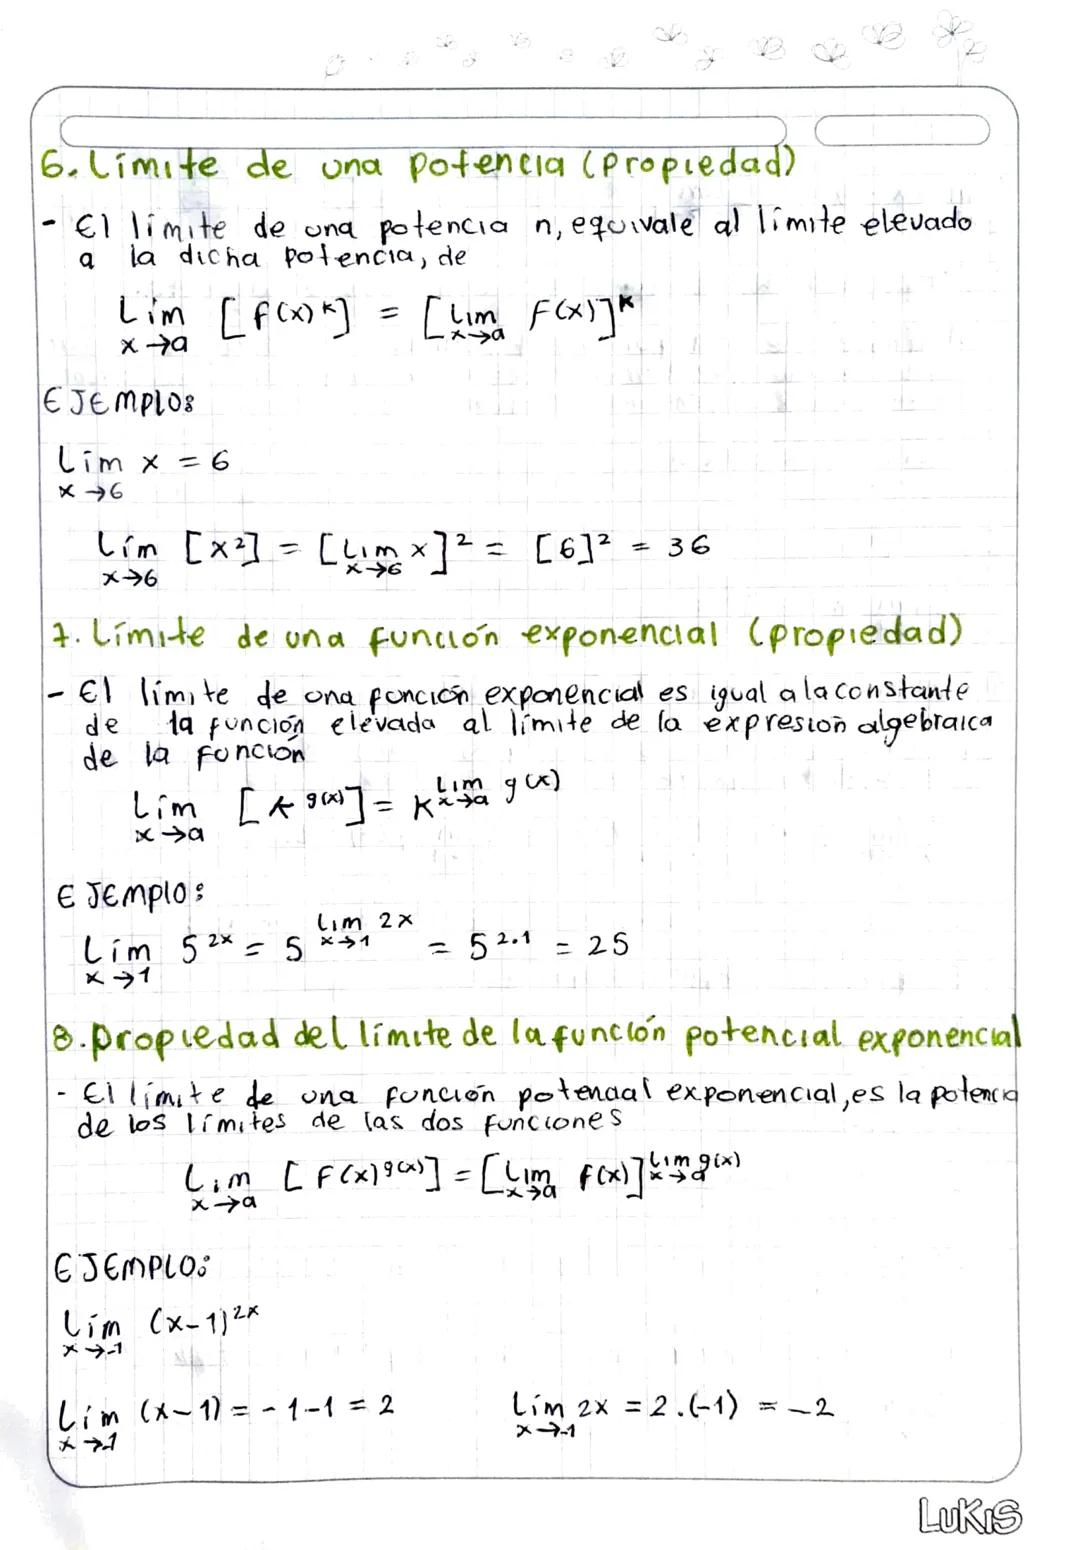 6. Límite de una potencia (propiedad)
- El límite de una potencia n, equivale al límite elevado
a la dicha potencia, de
Lím [f(x)^k] = [Lim F(x)]^k
x→a x→a
EJEMPLO:
Lím x = 6
x→6
Lím [x²] = [Lim x]² = [6]² = 36
x→6 x→6
7. Límite de una función exponencial (propiedad)
- El límite de una función exponencial es igual a la constante
de la función elevada al límite de la expresión algebraica
de la función
Lím [k^g(x)] = K^Lim x→a g(x)
x→a
EJEMPLO:
Lím 5^2x = 5^Lim x→1 2x = 5^2.1 = 25
x→1
8. propiedad del límite de la función potencial exponencial
- El límite de una función potencial exponencial, es la potencia
de los límites de las dos funciones
Lim [F(x)^g(x)] = [Lim f(x)]^Lim x→a g(x)
x→a x→a
EJEMPLO:
Lím (x-1)^2x
x→-1
Lím (x-1) = -1-1 = 2 Lím 2x = 2.(-1) = -2
x→-1 x→-1
LUKIS